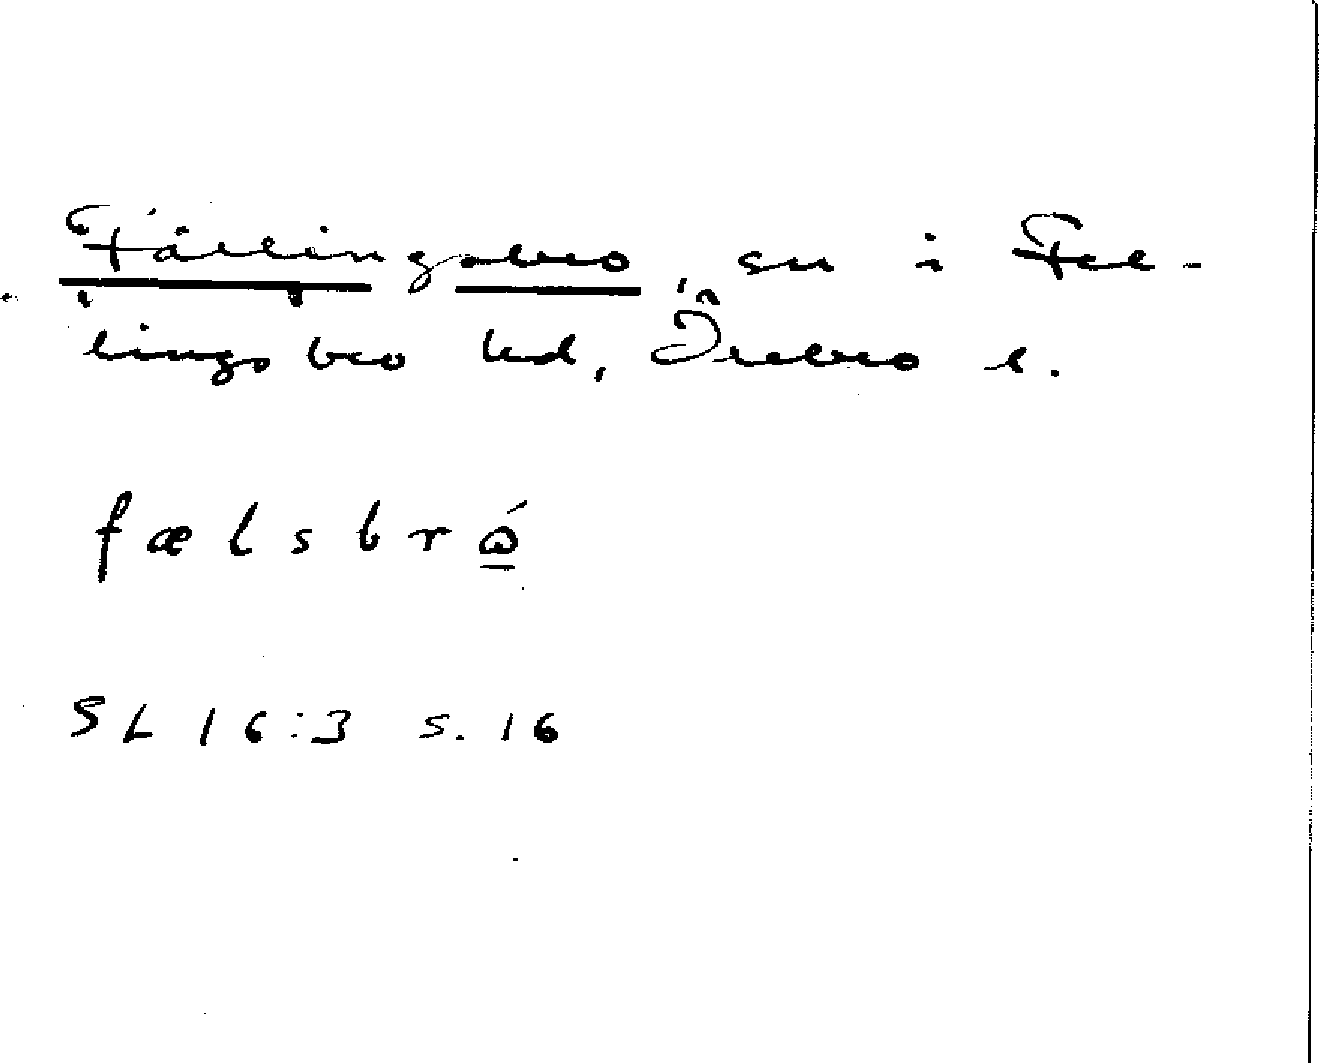 Fällingsbro, sn i Fel-
lingsbro hd, Örebro l.
fælsbrὼ
SL 16:3 s. 16